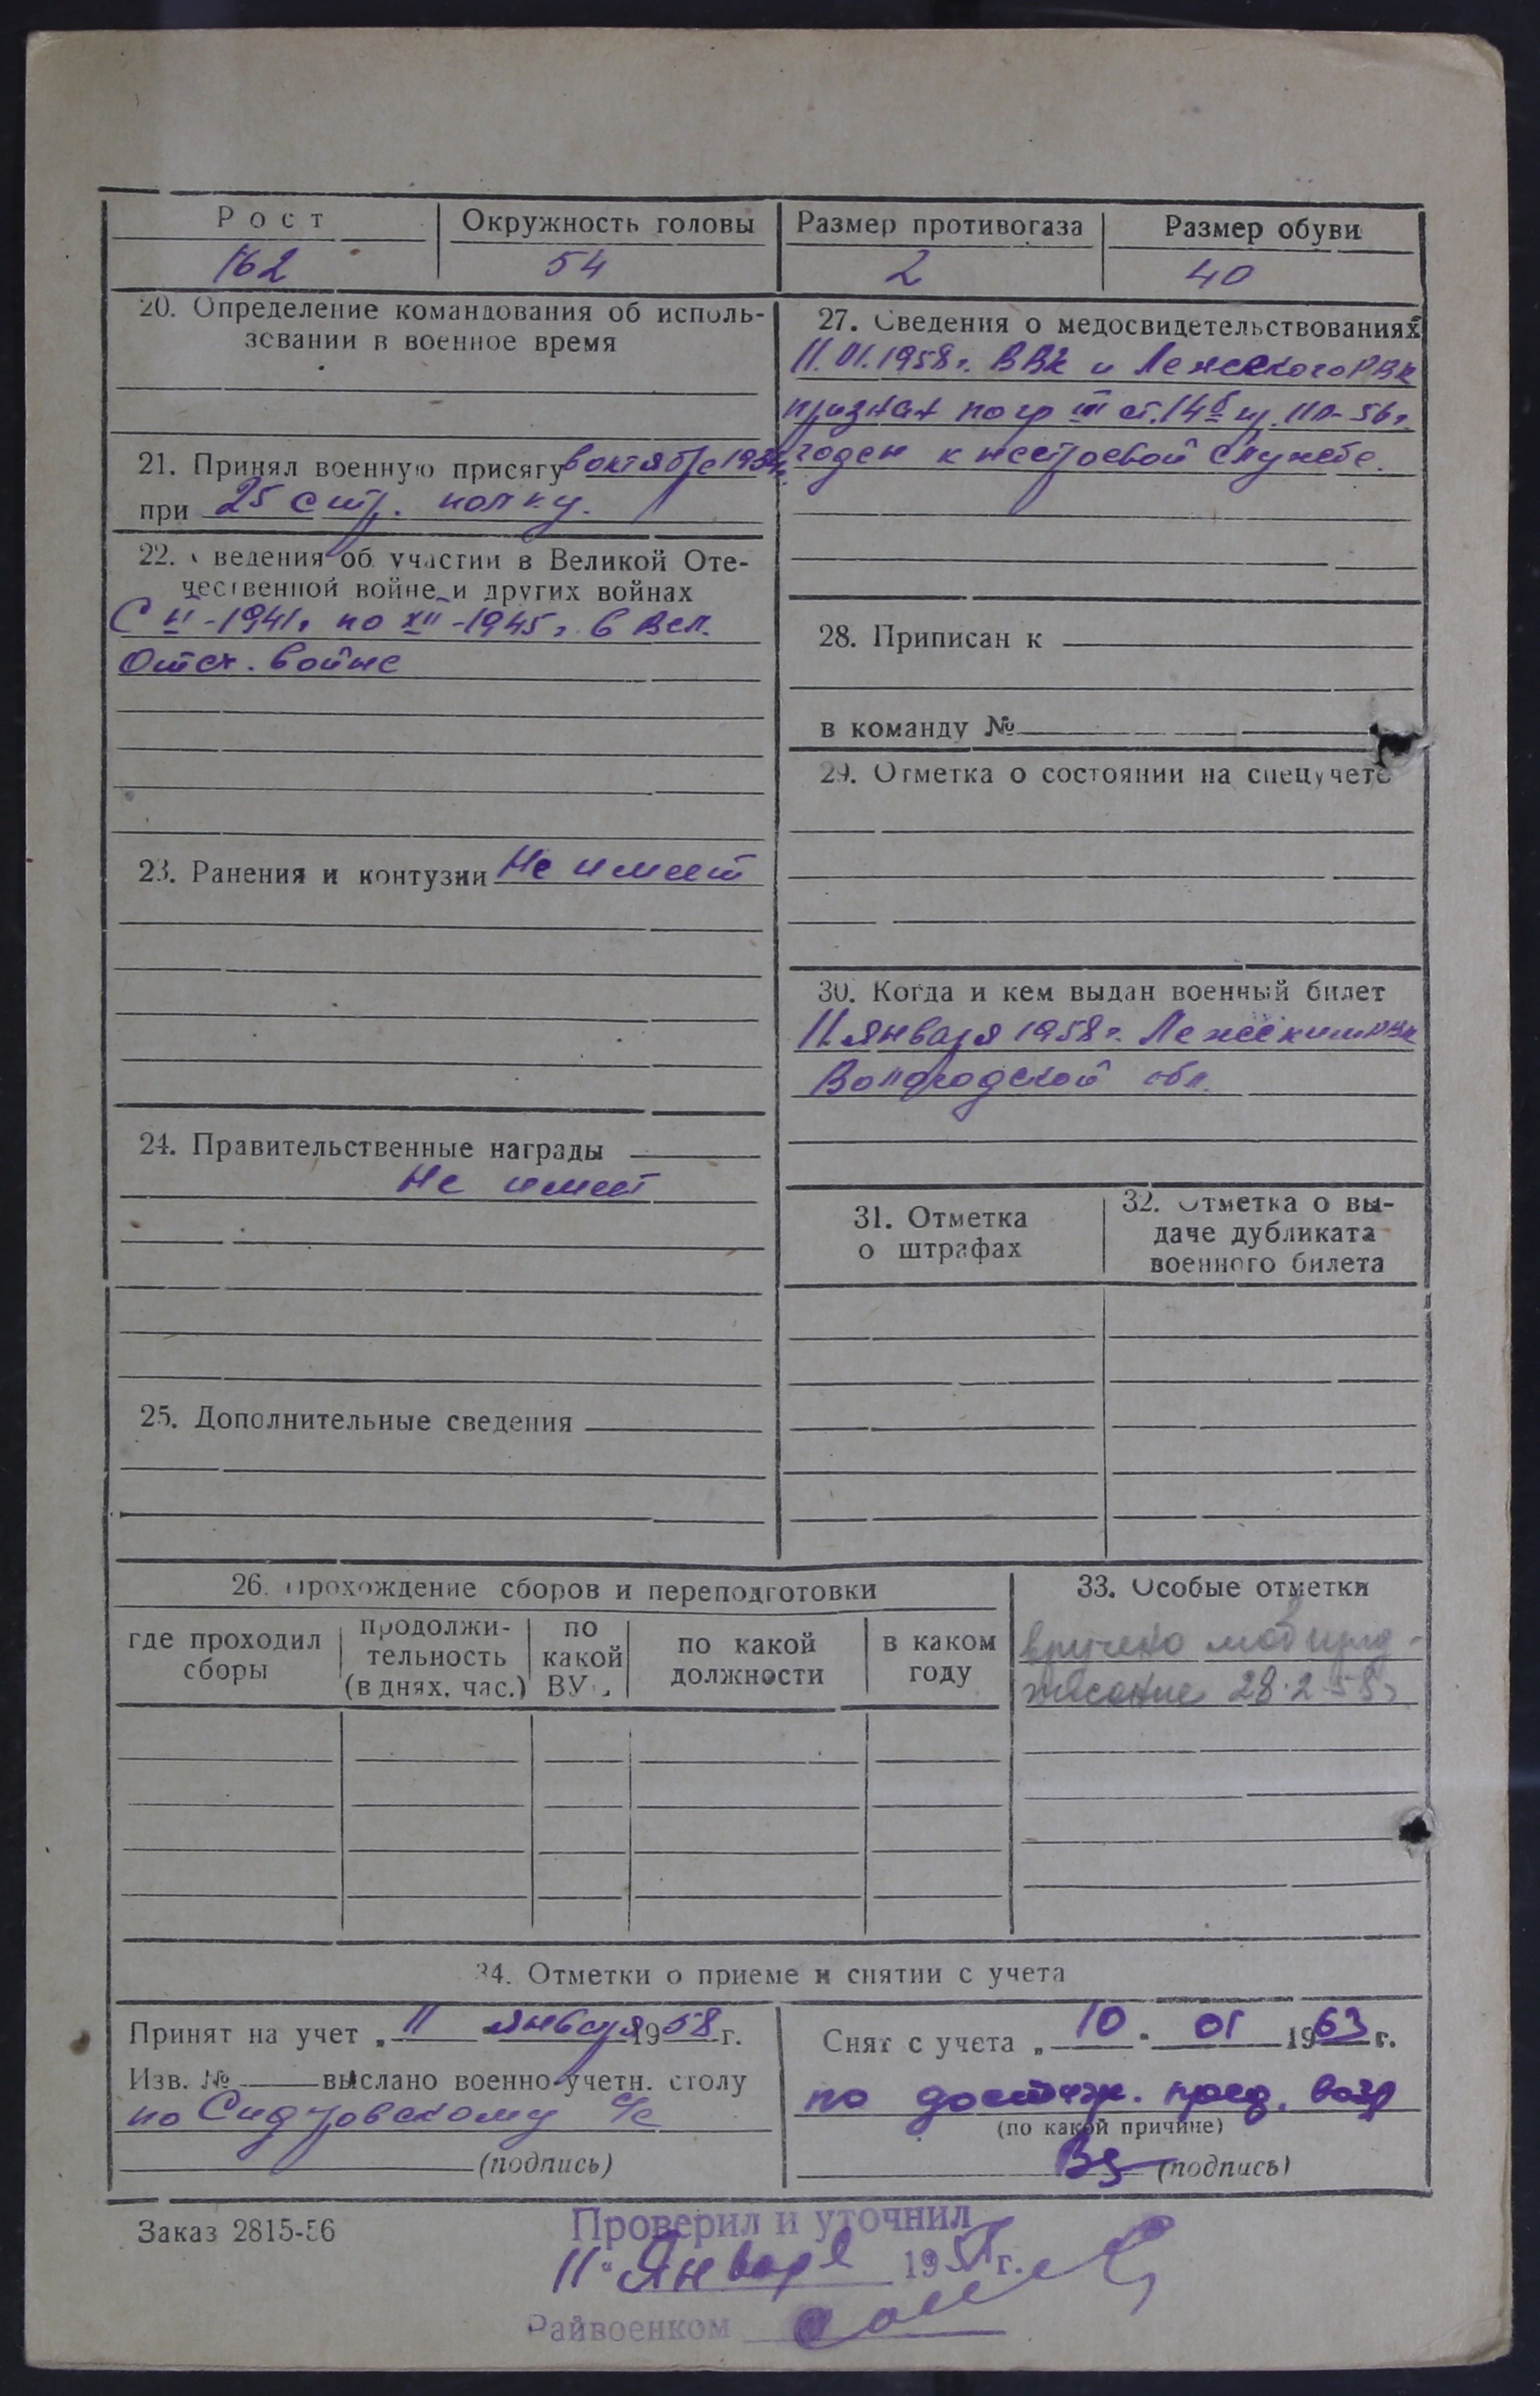 Рост
Окружность головы
Размер противогаза
Размер обуви
162
54
2
40
20. Определение командования об исполь-
зовании в военное время
21. Принял военную присягу в октябре
при 25 стр. полку.
22. Сведения об участии в Великой Оте-
чественной войне и других войнах
С VI-1941г по XII-1945г. в Вел.
Отеч. войне
23. Ранения и контузии Не имеет
24. Правительственные награды
Не имеет
25. Дополнительные сведения
27. Сведения о медосвидетельствованиях
11.01.1958г. ВВК Лежского РВК
признан по гр III ст. 14б пр. 110-56г.
годен к нестроевой службе.
28. Приписан к
в команду №
29. Отметка о состоянии на спецучете
30. Когда и кем выдан военный билет
11 января 1958г. Лежским РВК
Вологодской обл.
31. Отметка
о штрафах
32. Отметка о вы-
даче дубликата
военного билета
26. Прохождение сборов и переподготовки
где проходил
сборы
продолжи-
тельность
(в днях, час.)
по
какой
ВУС
по какой
должности
в каком
году
33. Особые отметки
вручено мобпред-
писание 28.2.58г
34. Отметки о приеме и снятии с учета
Принят на учет „11 января 1958 г.
Изв. № выслано военно-учетн. столу
по Сидоровскому с/с
(подпись)
Снят с учета „10" 01 1963 г.
по достиж. пред. возр
(по какой причине)
(подпись)
Заказ 2815-56
Проверил и уточнил
11 " Января 195 г.
Райвоенком